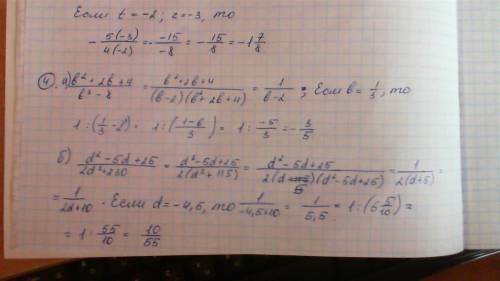 Если t = -2; z = -3, то
- 5(-3)/4(-2) = - -15/-8 = - 15/8 = -1 7/8
④. а) b²+2b+4/b³-8 = b²+2b+4/(b-2)(b²+2b+4) = 1/b-2; Если b = 1/3, то
1:(1/3-2) = 1:(1-6/3) = 1: -5/3 = - 3/5
б) d²-5d+25/2d³+230 = d²-5d+25/2(d³+115) = d²-5d+25/2(d+5)(d²-5d+25) = 1/2(d+5) =
= 1/2d+10. Если d = -4,5, то 1/-4,5+10 = 1/5,5 = 1:(5 5/10) =
= 1: 55/10 = 10/55